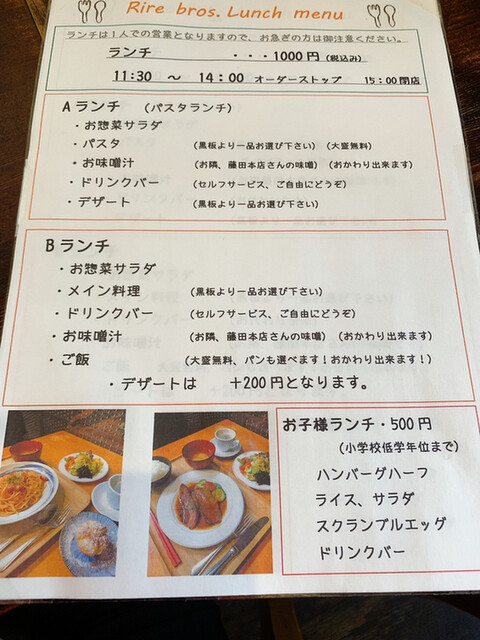 Rire bros. Lunch menu
ランチは1人での営業となりますので、お急ぎの方は御注意ください。
ランチ ・・・1000円(税込み)
11:30 ～ 14:00 オーダーストップ 15:00閉店
Aランチ (パスタランチ)
・お惣菜サラダ
・パスタ (黒板より一品お選び下さい) (大盛無料)
・お味噌汁 (お隣、藤田本店さんの味噌) (おかわり出来ます)
・ドリンクバー (セルフサービス、ご自由にどうぞ)
・デザート (黒板よりお選び下さい)
Bランチ
・お惣菜サラダ
・メイン料理 (黒板より一品お選び下さい)
・ドリンクバー (セルフサービス、ご自由にどうぞ)
・お味噌汁 (お隣、藤田本店さんの味噌) (おかわり出来ます)
・ご飯 (大盛無料、パンも選べます！おかわり出来ます！)
・デザートは +200円となります。
お子様ランチ・500円
(小学校低学年位まで)
ハンバーグハーフ
ライス、サラダ
スクランブルエッグ
ドリンクバー